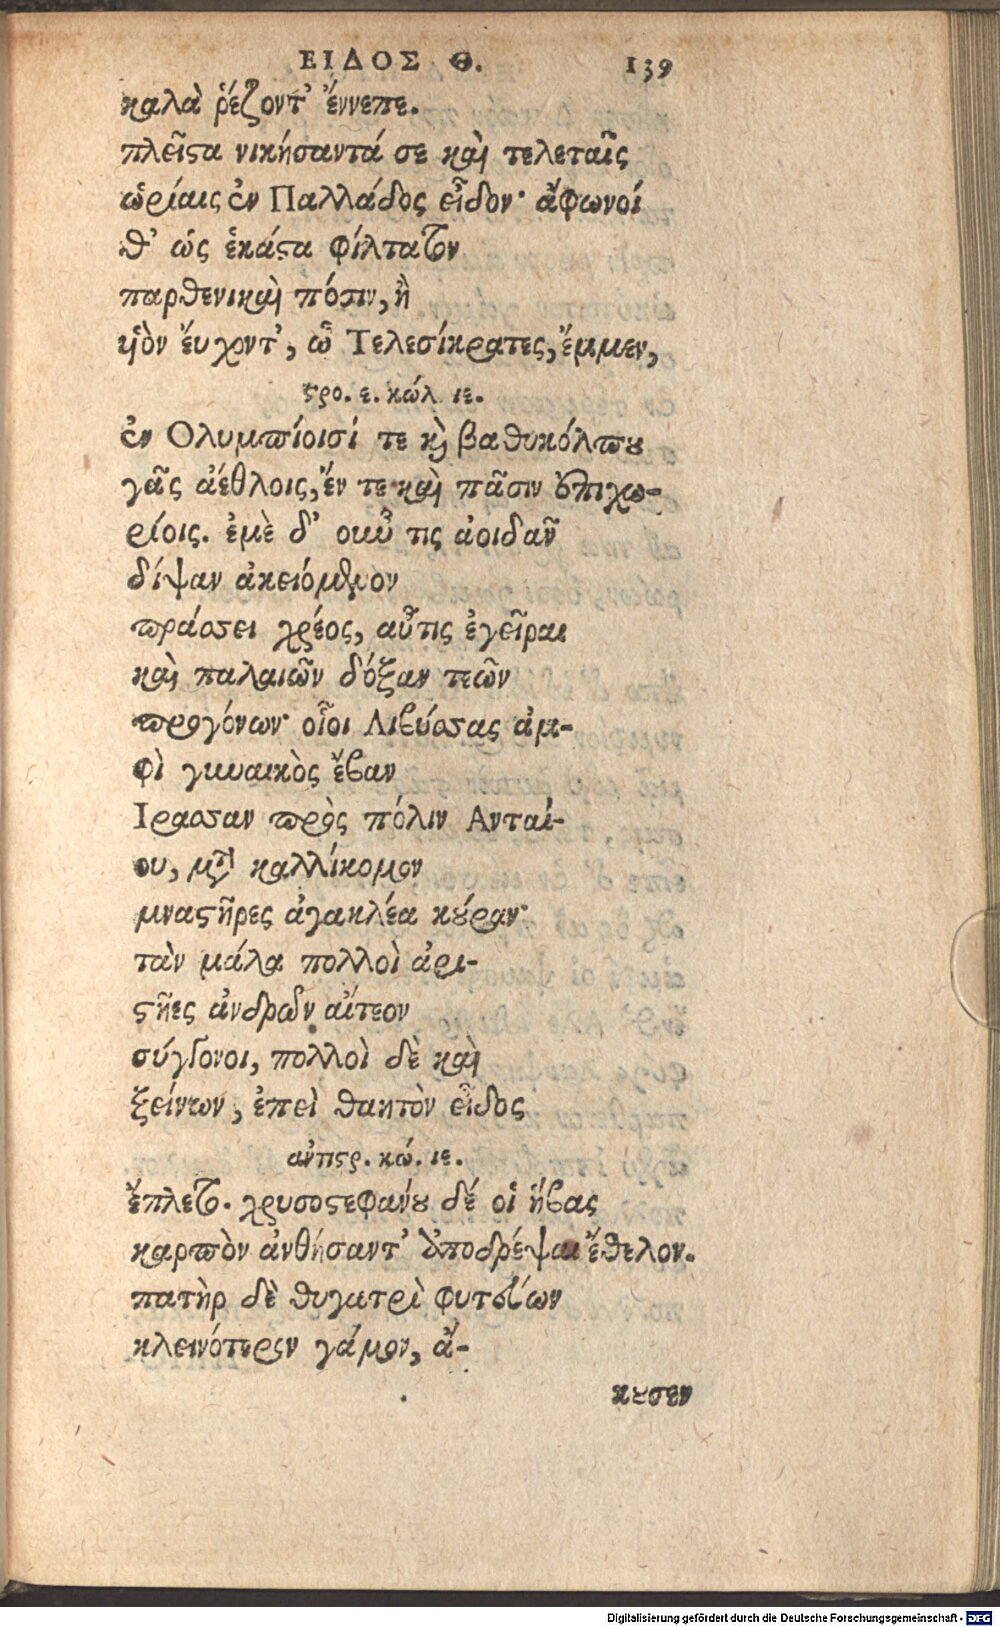 ΕΙΔΟΣ Θ. 139
καλὰ ῥέζοντ' ἔννεπε.
πλεῖϛα νικήσαντά σε καὶ τελεταῖς
ὡρίαις ἐν Παλλάδος εἶδον· ἄφωνοί
θ' ὡς ἑκάϛα φίλτατον
παρθενικαὶ πόσιν, ἢ
υἱὸν ἔυχοντ', ὦ Τελεσίκρατες, ἔμμεν,
ϛρο. ε. κώλ. ιε.
ἐν Ολυμπίοισί τε κὶ βαθυκόλπου
γᾶς ἀέθλοις, ἔν τε καὶ πᾶσιν ἐπιχω-
ρίοις. ἐμὲ δ' οὐκ τις ἀοιδᾶν
δίψαν ἀκειόμενον
πράσσει χρέος, αὖτις ἐγεῖραι
καὶ παλαιῶν δόξαν τεῶν
προγόνων· οἷοι Λιβύσσας ἀμ-
φὶ γυναικὸς ἔβαν
Ιρασσαν πρὸς πόλιν Ανταί-
ου, μετὰ καλλίκομον
μναϛῆρες ἀγακλέα κούραν·
τὰν μάλα πολλοὶ ἀρι-
ϛῆες ἀνδρῶν αἴτεον
σύγγονοι, πολλοὶ δὲ καὶ
ξείνων, ἐπεὶ θαητὸν εἶδος
ἀντιϛρ. κώ. ιε.
ἔπλετο. χρυσοϛεφάνου δέ οἱ ἥβας
καρπὸν ἀνθήσαντ' ἀποδρέψαι ἔθελον.
πατὴρ δὲ θυγατρὶ φυτεύων
κλεινότερον γάμον, ἄ-
κουσεν
Digitalisierung gefördert durch die Deutsche Forschungsgemeinschaft - DFG